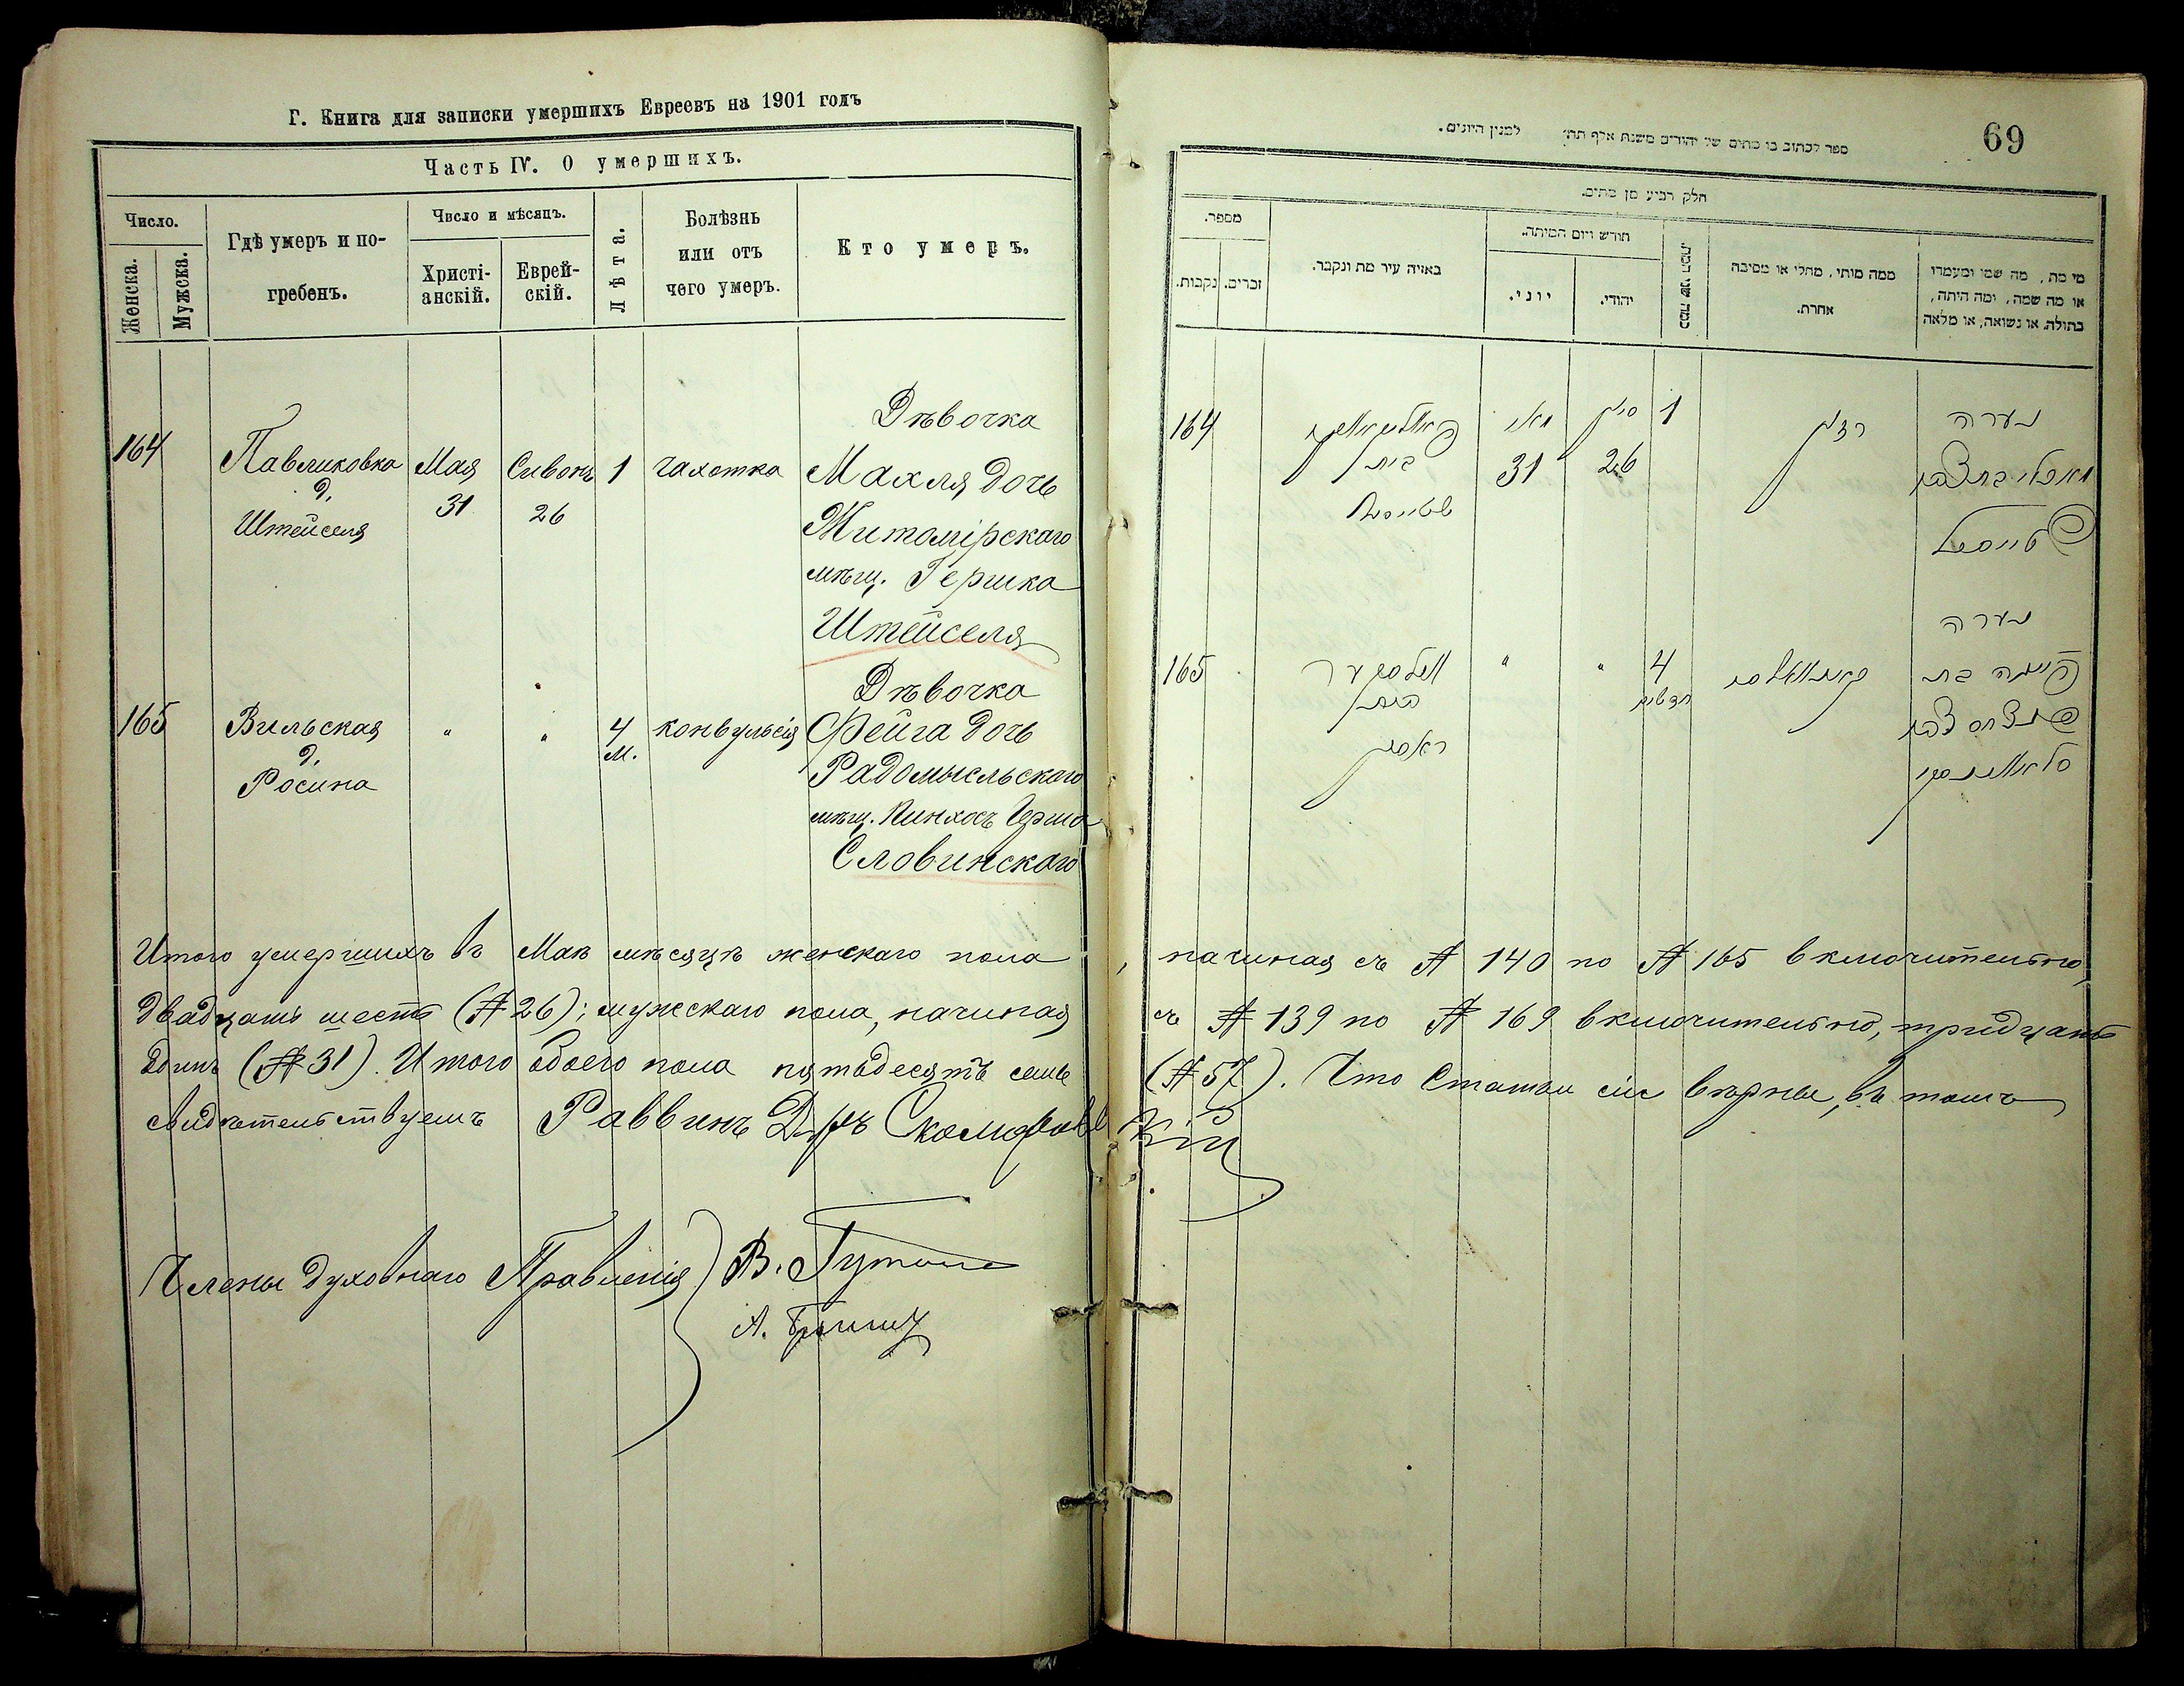 Г. Книга для записки умершихъ Евреевъ на 1901 годъ
Часть IV. О умершихъ.
Число.
Женска.
Мужеска.
Гдѣ умеръ и по-
гребенъ.
Число и мѣсяцъ.
Христі-
анскій.
Еврей-
скій.
Лѣта.
Болѣзнь
или отъ
чего умеръ.
Кто умеръ.
164
Павликовка
д.
Штейселя
Мая
31
Сивонъ
26
1
чахотка
Дѣвочка
Махля дочь
Житомірскаго
мѣщ. Гершка
Штейселя
165
Вильская
д.
Росина
"
"
4
м.
конвульсія
Дѣвочка
Фейга дочь
Радомысльскаго
мѣщ. Пинхосъ Герша
Словинскаго
Итого умершихъ въ Маѣ мѣсяцѣ женскаго пола, начиная съ № 140 по № 165 включительно,
двадцать шесть (№ 26); мужскаго пола, начиная съ № 139 по № 169 включительно, тридцать
одинъ (№ 31). Итого обоего пола пятьдесятъ семь (№ 57). Что статьи сіи вѣрны, въ томъ
свидѣтельствуемъ Раввинъ Д-ръ
Члены Духовнаго Правленія
69
ספר לכתוב בו מתים של יהודים משנת אלף תת׳ למנין היונים.
חלק רביע מן מתים.
מספר.
נקבות.
זכרים.
באיזה עיר מת ונקבר.
חודש ויום המיתה.
יוני.
יהודי.
כמה שני המת.
ממה מותו, מחלי או מסיבה
אחרת.
מי מת, מה שמו ומעמדו
או מה שמה, ומה היתה,
בתולה, או נשואה, או מלאה
164
בית
מאי
31
סיון
26
1
נערה
165
בית
"
"
4
חדשים
נערה